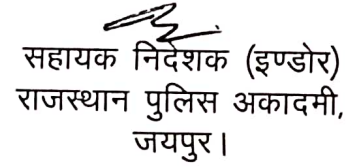 सहायक निदेशक (इण्डोर)
राजस्थान पुलिस अकादमी,
जयपुर।